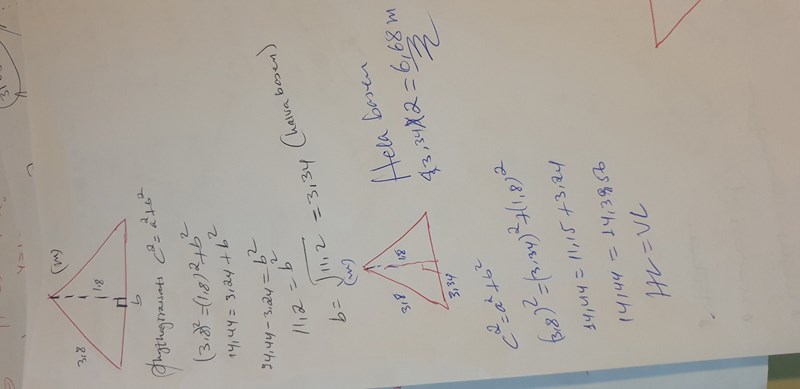 (m)
3,8
1,8
b
Phythogoransats c²=a²+b²
(3,8)²=(1,8)²+b²
14,44=3,24+b²
14,44-3,24=b²
11,2=b²
b=√11,2=3,34 (halva basen)
(m)
3,8
1,8
3,34
Hela basen
3,34×2=6,68m
c²=a²+b²
(3,8)²=(3,34)²+(1,8)²
14,44=11,15+3,24
14,44=14,3956
HL=VL